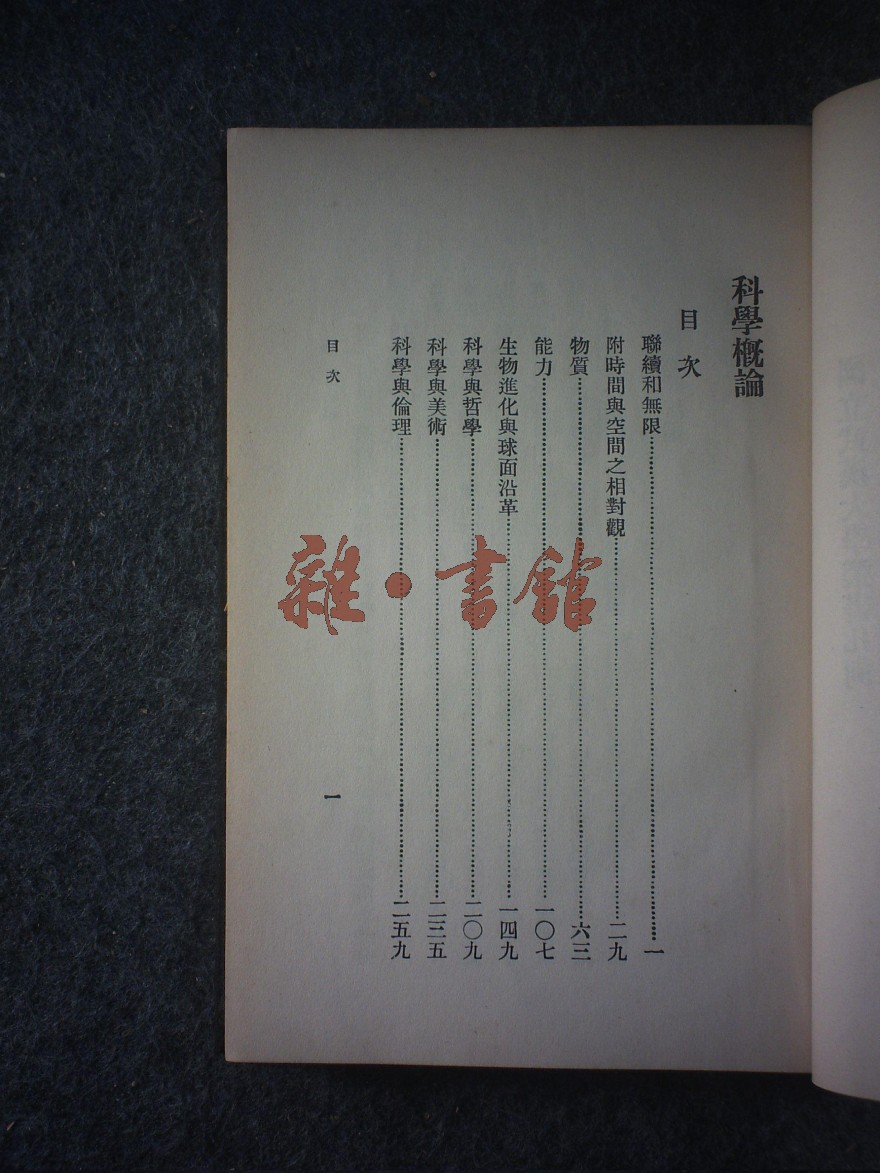 科學概論
目次
聯續和無限……一
附時間與空間之相對觀……二九
物質……六三
能力……一〇七
生物進化與球面沿革……一四九
科學與哲學……二〇九
科學與美術……二三五
科學與倫理……二五九
目次
一
雜·書館